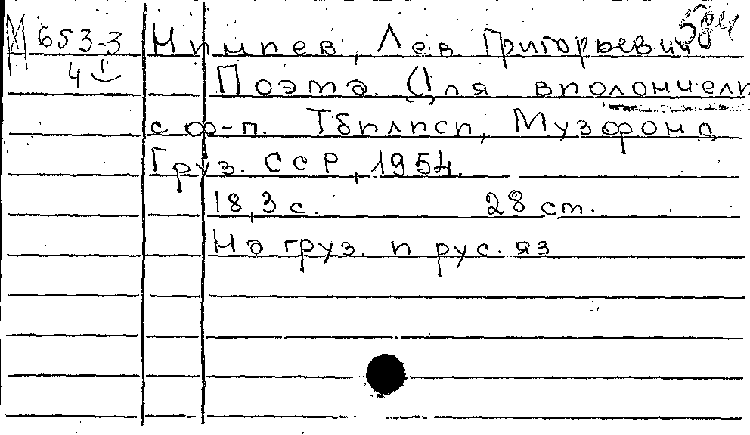 М 653-3
4
Нимпев, Лев Григорьевич
Поэма Для виолончели
с ф-п. Тбилиси, Музфонд
Груз. ССР, 1954.
18,3 с. 28 cm.
На груз. и рус. яз